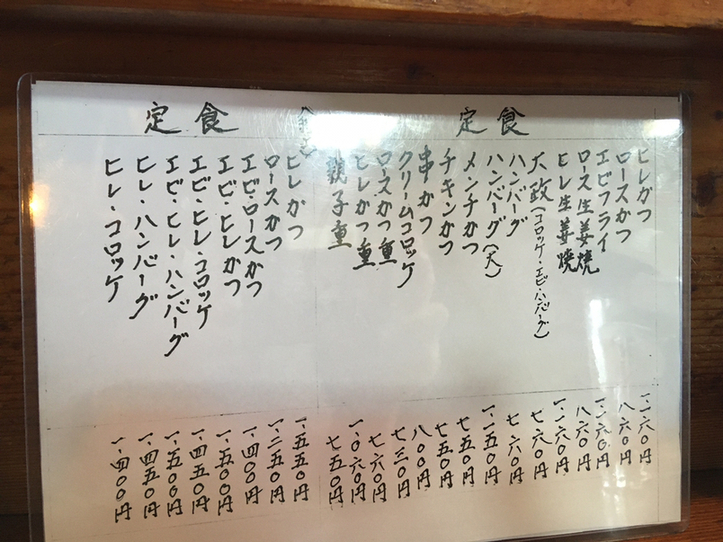 定食
ヒレかつ 一・一六〇円
ロースかつ 八六〇円
エビフライ 一・〇六〇円
ロース生姜焼 八六〇円
ヒレ生姜焼 一・一六〇円
大政(コロッケ・エビ・ハンバーグ) 七六〇円
ハンバーグ 七六〇円
ハンバーグ(大) 一・一五〇円
メンチかつ 七五〇円
チキンかつ 七五〇円
串かつ 八〇〇円
クリームコロッケ 七三〇円
ロースかつ重 七六〇円
ヒレかつ重 一・〇六〇円
親子重 七五〇円
定食
ヒレかつ 一・五五〇円
ロースかつ 一・二五〇円
エビ・ロースかつ 一・四〇〇円
エビ・ヒレかつ 一・五〇〇円
エビ・ヒレ・コロッケ 一・四五〇円
エビ・ヒレ・ハンバーグ 一・五〇〇円
ヒレ・ハンバーグ 一・四五〇円
ヒレ・コロッケ 一・四〇〇円